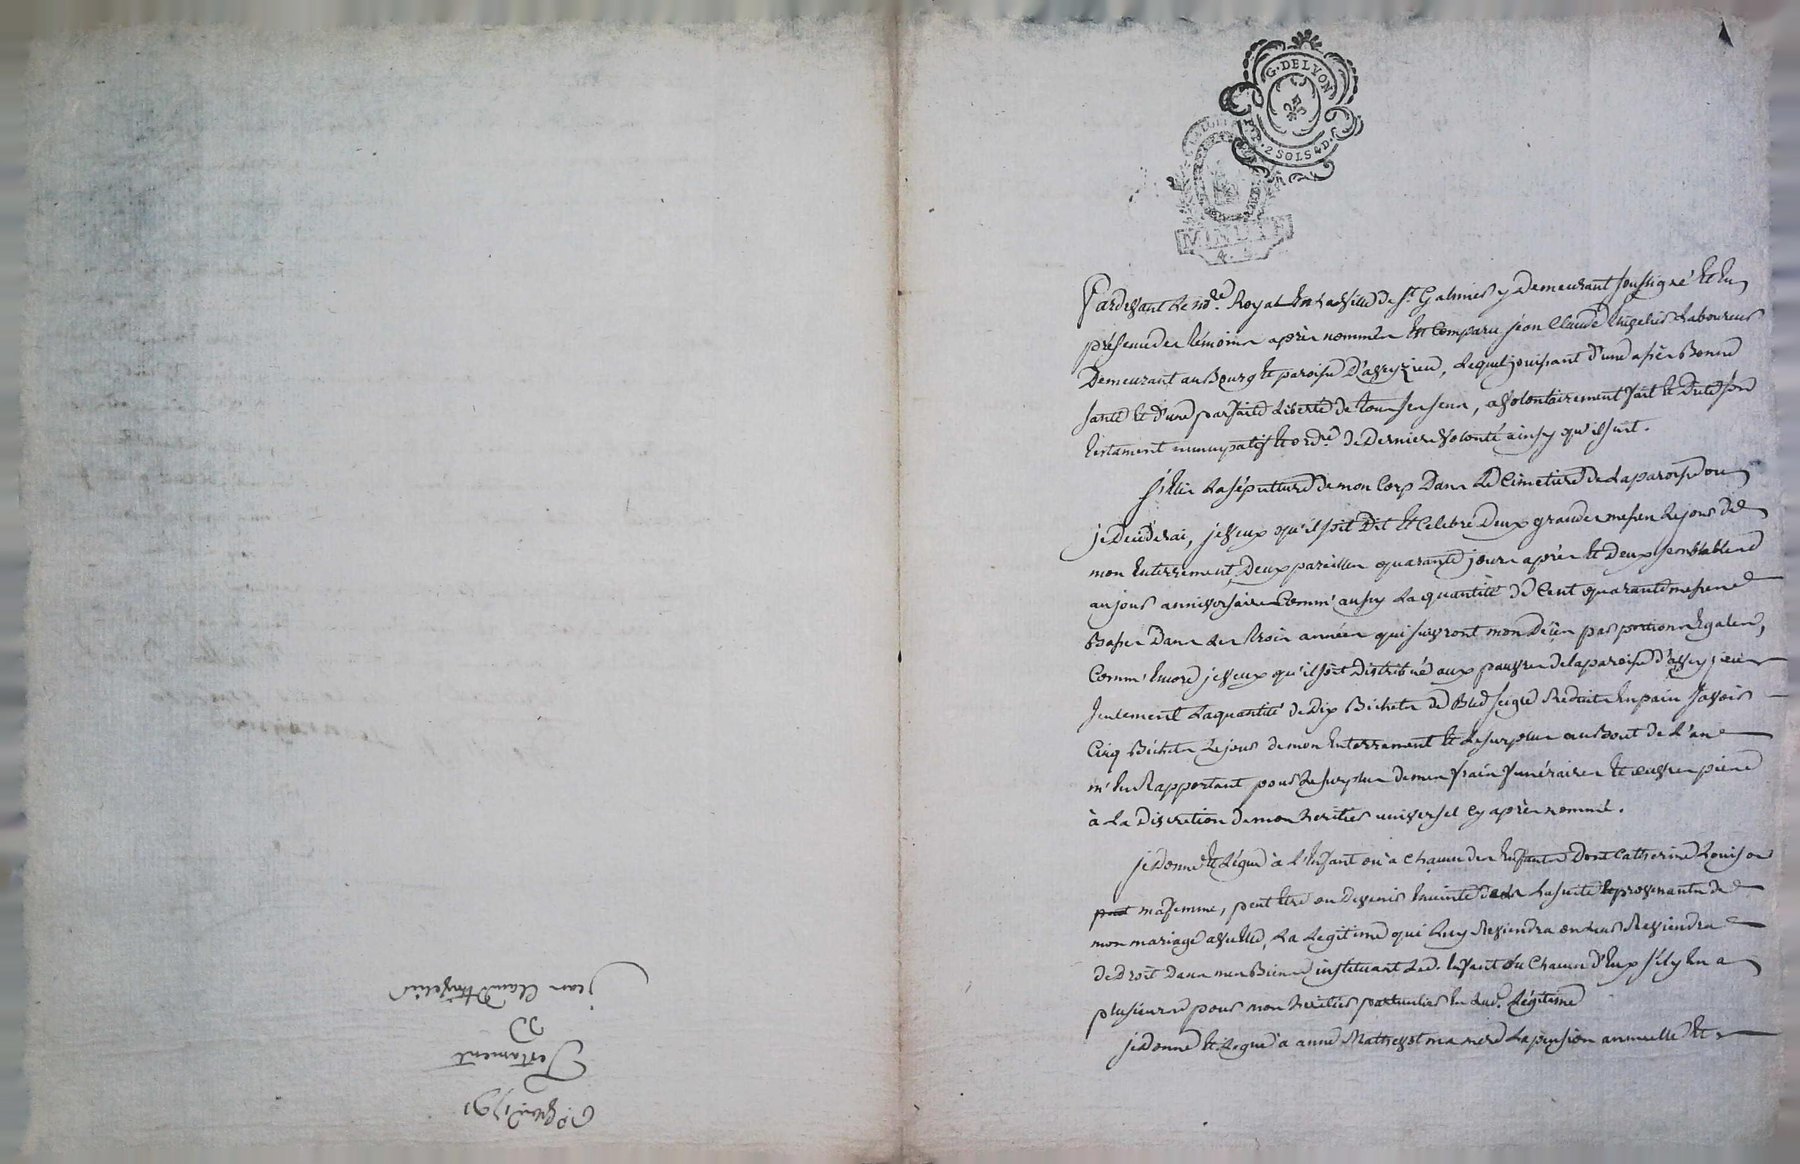 G. DE LYON
2 SOLS 4 D.
MINUTE
4. S
Pardevant le no.re Royal En la ville de St. Galmier y demeurant soussigné Et En
présence des témoins après nommés Est Comparu jean Claude laboureur
Demeurant au Bourg Et paroisse D'aveyzieu, lequel jouissant d'une assés Bonne
santé Et D'une parfaite liberté de tous ses sens, a volontairement fait Et Dicté son
testament nuncupatif Et ord.re de Derniere volonté ainsy qu'il suit.
S'Elis la sépulture de mon Corp Dans le Cimetiere de la paroisse ou
je Déciderai, je veux qu'il soit Dit Et Celebré Deux grandes messes le jour de
mon Enterrement, Deux pareilles quarante jours après Et Deux semblables
au jour anniversaire Comm' aussy la quantité de Cent quarante messes
Basses Dans les trois années qui suivront mon Décès par portions Egales,
Comm' Encore je veux qu'il soit Distribué aux pauvres de la paroisse d'aveyzieu
seulement la quantité de Dix Bichets de Bled seigle Reduits En pain savoir
Cinq Bichets le jour de mon Enterrement Et le surplus au Bout de l'an
m'En Rapportant pour le surplus de mes frais funéraires Et œuvres pies
à la Discretion de mon heritier universel Cy après nommé.
je donne Et légue à l'Enfant ou à Chacun des Enfants Dont Catherine Louison
ma femme, peut Etre ou Devenir Enceinte dans la suite Et provenants de
mon mariage avec Elle, la legitime qui luy Reviendra ou leur Reviendra
de Droit Dans mes Biens instituant led. Enfant ou Chacun d'Eux s'il y En a
plusieurs pour mon heritier particulier En lad. légitime
je donne Et legue à anne ma mere la pension annuelle Et
1791
Testament
DD
jean Claude